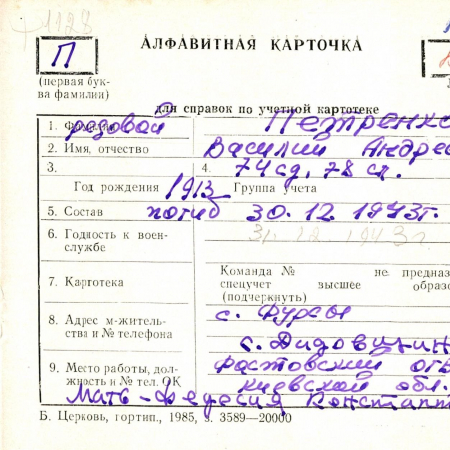 1128
П
АЛФАВИТНАЯ КАРТОЧКА
(первая бук-
ва фамилии)
для справок по учетной картотеке
1. Фамилия рядовой Петренко
2. Имя, отчество Василий Андрес
3. 4. 74 сд, 78 сп.
Год рождения 1913 Группа учета
5. Состав погиб 30.12.1943г.
6. Годность к воен-
службе
31.12.1943г
7. Картотека
Команда № не предназ
спецучет высшее образо
(подчеркнуть)
8. Адрес м-житель-
ства и № телефона
с. Фурсы
с. Дидовщин
9. Место работы, дол-
жность и № тел. ОК
Фастовский
киевской обл.
Мать - Федосия Констант
Б. Церковь, гортип., 1985, з. 3589—20000